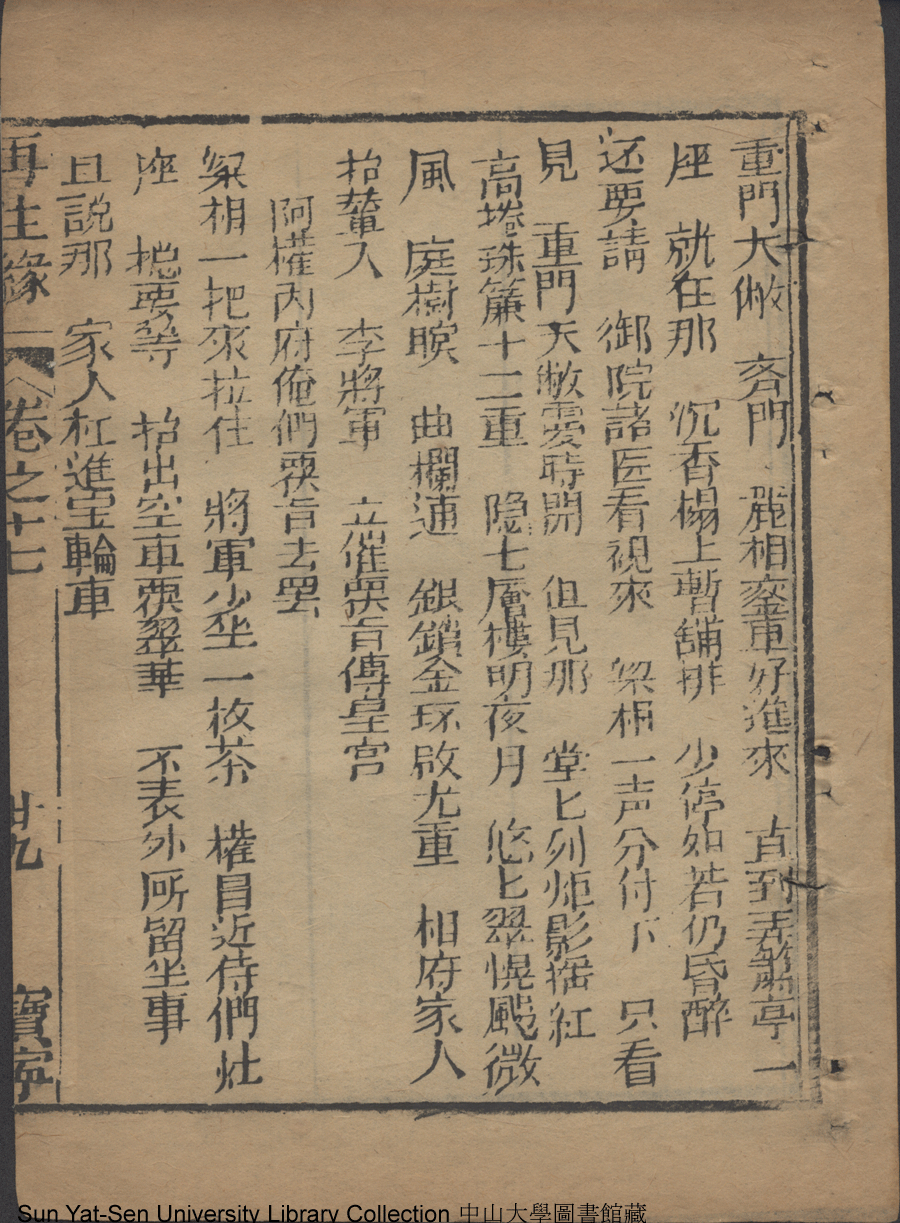 重門大敞　齊門　酈相鑾車好進來　直到弄簫亭一
座　就在那　沉香榻上暫舖排　少停如若仍昏醉
还要請　御院諸医看視來　梁相一声分付下　只看
見　重門大敞霎時開　但見那　堂匕列炬影搖紅
高捲珠簾十二重　隐七層樓明夜月　悠匕翠幌颭微
風　庭樹暝　曲欄通　銀鎖金环啟九重　相府家人
抬輦入　李將軍　立催禀旨傳皇宮
阿權內府俺們覆旨去罢
梁相一把來拉住　將軍少坐一枚茶　權昌近侍們灶
座　摠要等　抬出空車覆翠華　不表外所留坐事
且説那　家人杠進宝輪車
再生緣　卷之十七　廿九　寶寧
Sun Yat-Sen University Library Collection 中山大學圖書館藏